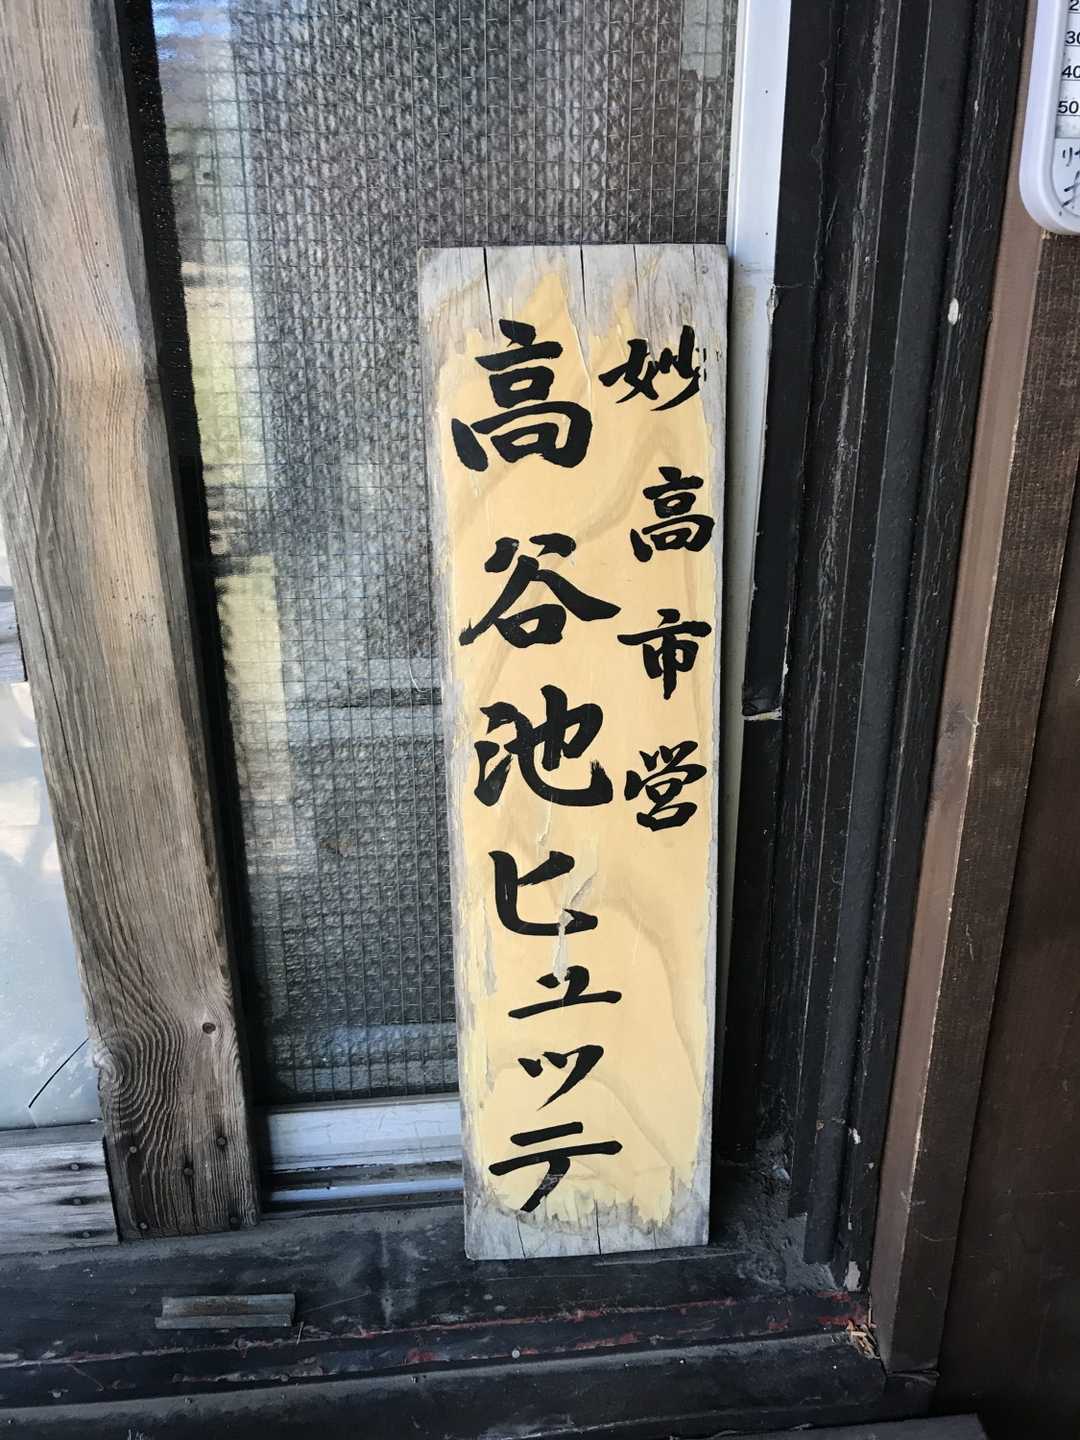 妙高市営
高谷池ヒュッテ
20
30
40
50